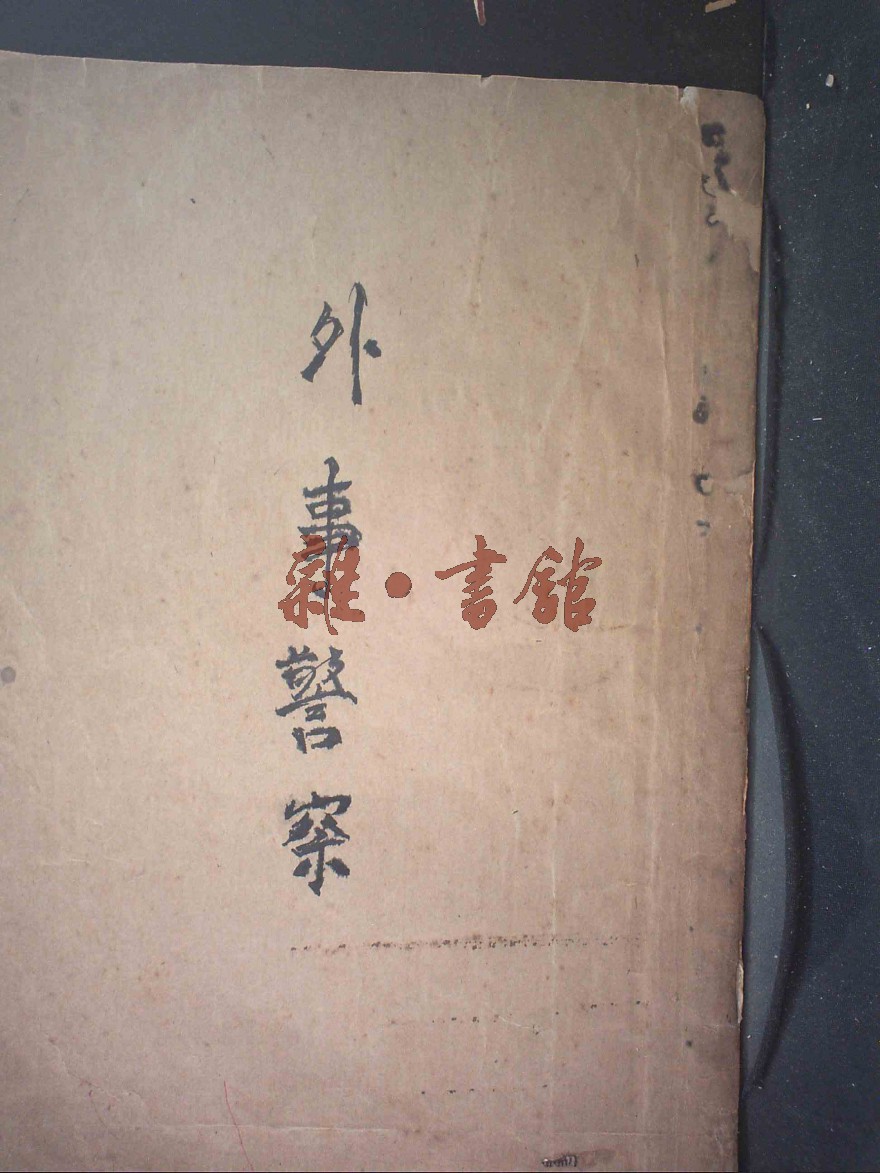 外事警察
雜·書館